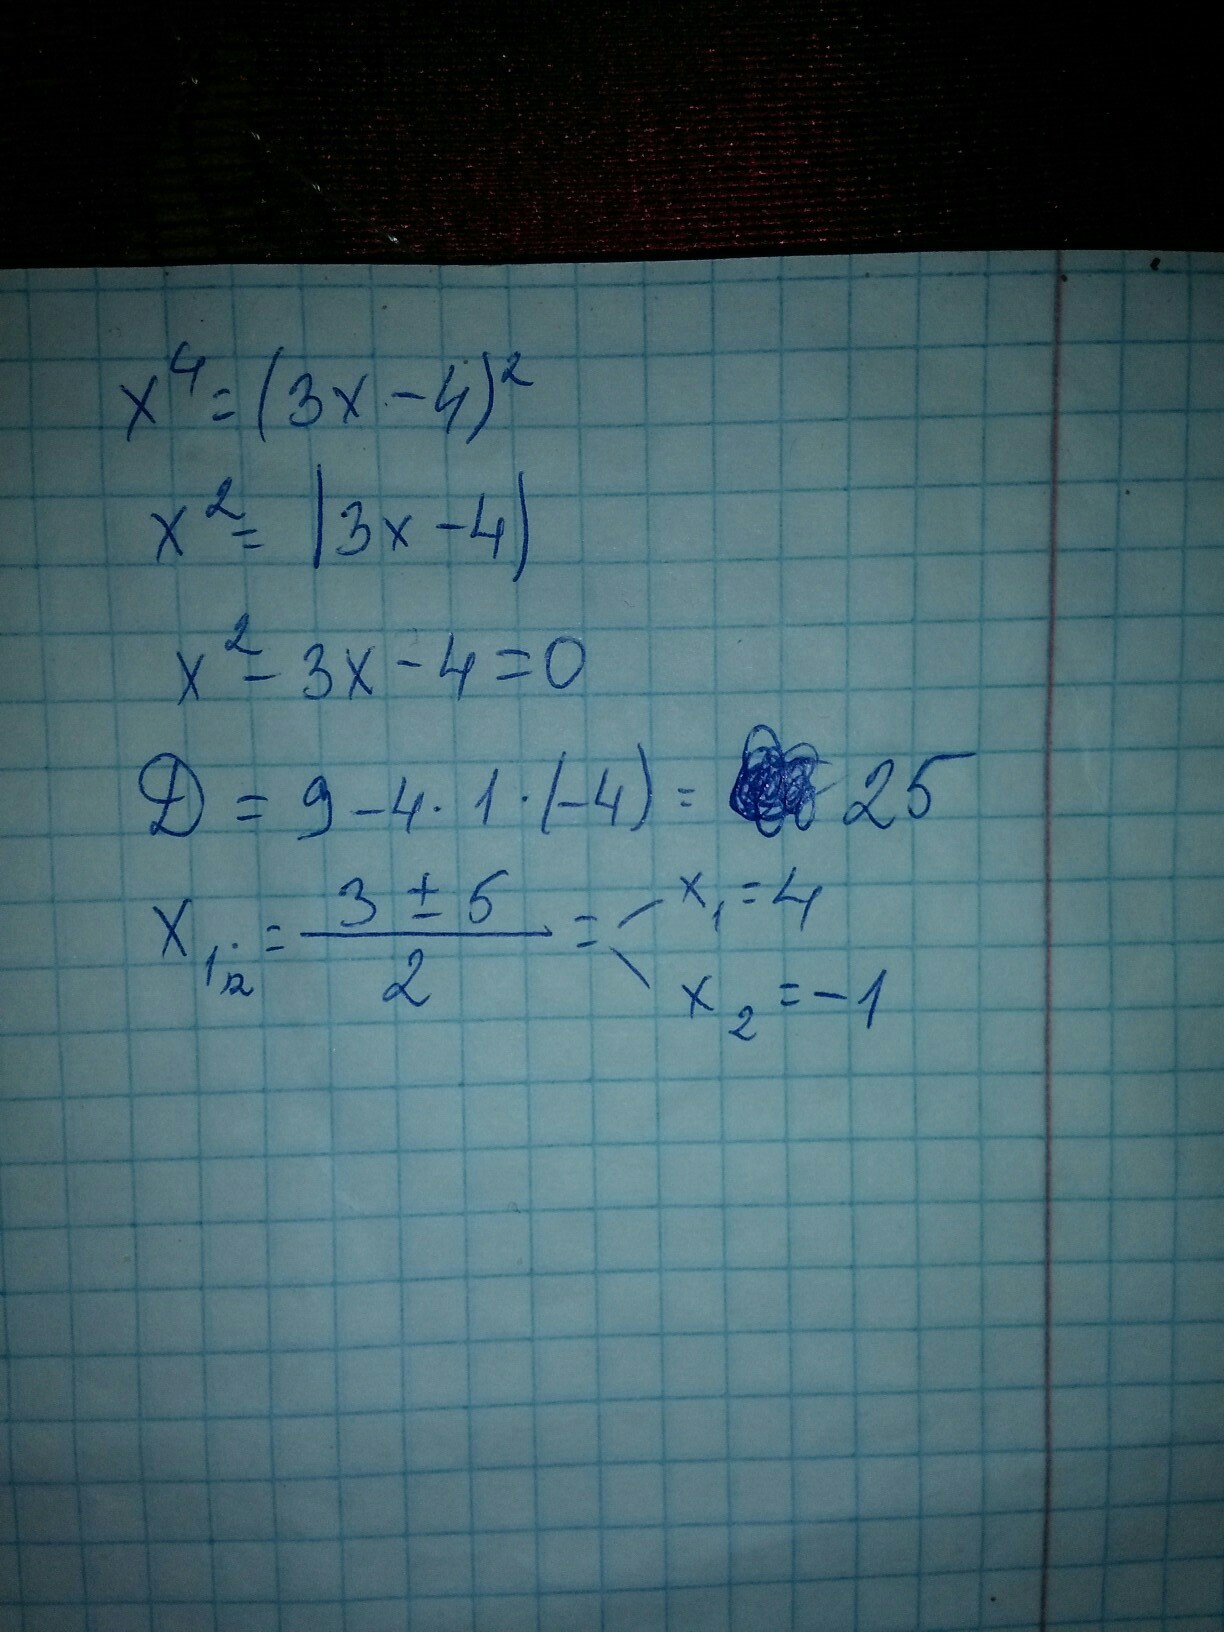 x⁴ = (3x - 4)²
x² = |3x - 4)
x² - 3x - 4 = 0
D = 9 - 4 · 1 · (-4) = 25
x₁,₂ = (3 ± 5)/2 = x₁ = 4
x₂ = -1